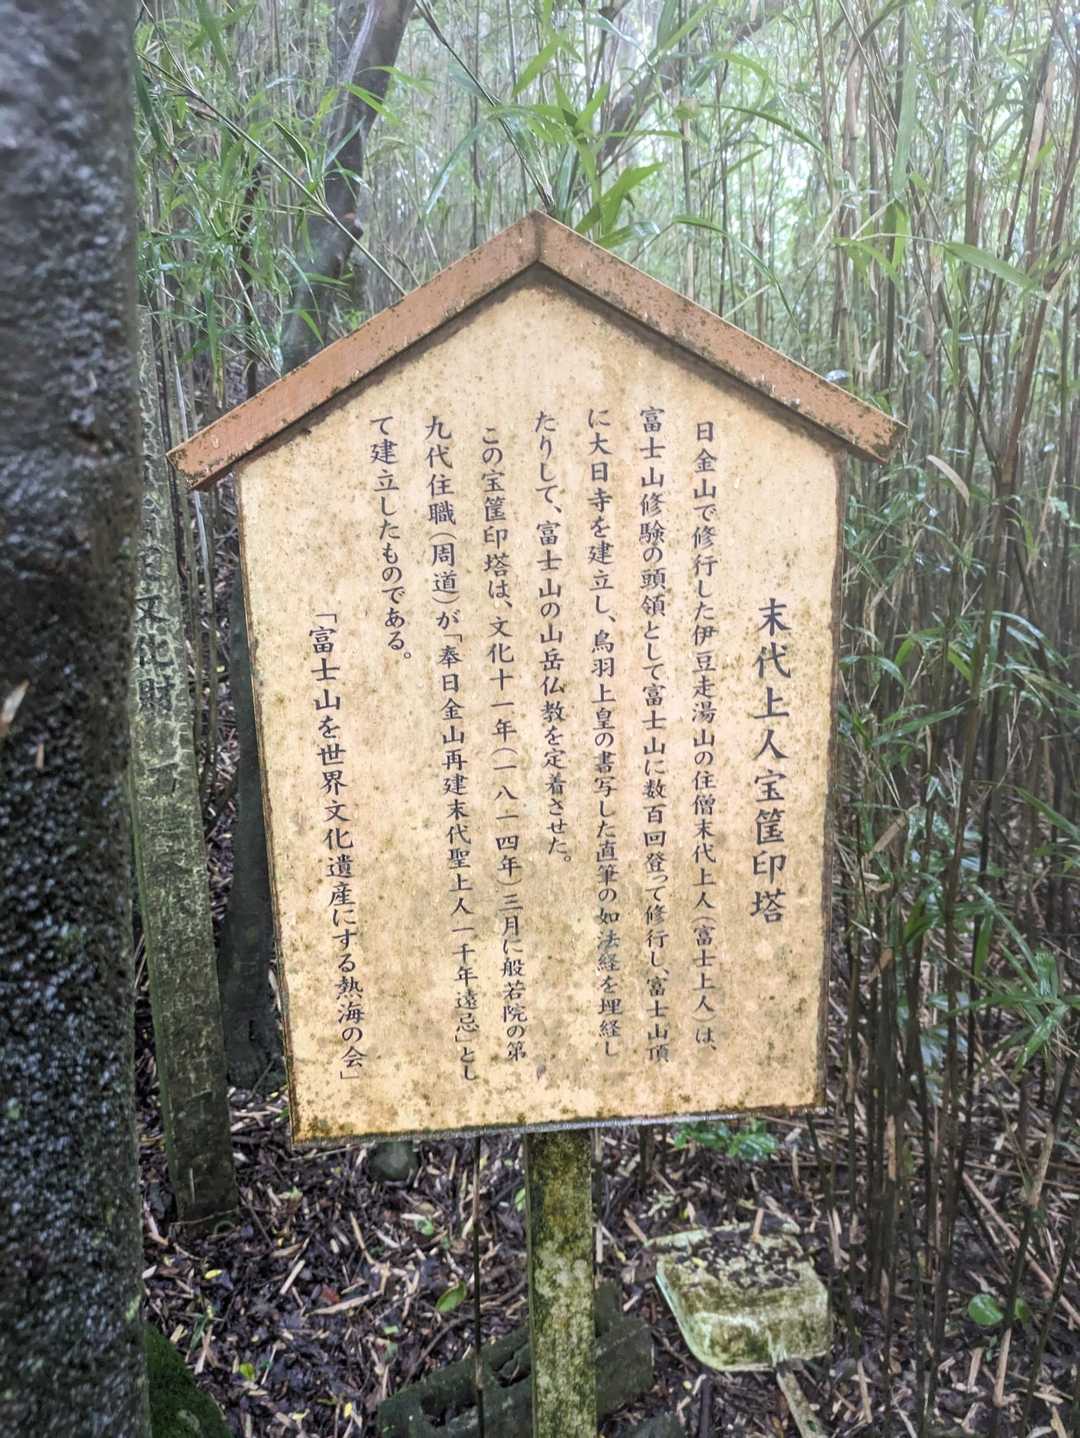 末代上人宝筐印塔
日金山で修行した伊豆走湯山の住僧末代上人(富士上人)は、
富士山修験の頭領として富士山に数百回登って修行し、富士山頂
に大日寺を建立し、鳥羽上皇の書写した直筆の如法経を埋経し
たりして、富士山の山岳仏教を定着させた。
この宝筐印塔は、文化十一年(一八一四年)三月に般若院の第
九代住職(周道)が「奉日金山再建末代聖上人一千年遠忌」とし
て建立したものである。
「富士山を世界文化遺産にする熱海の会」
文化財